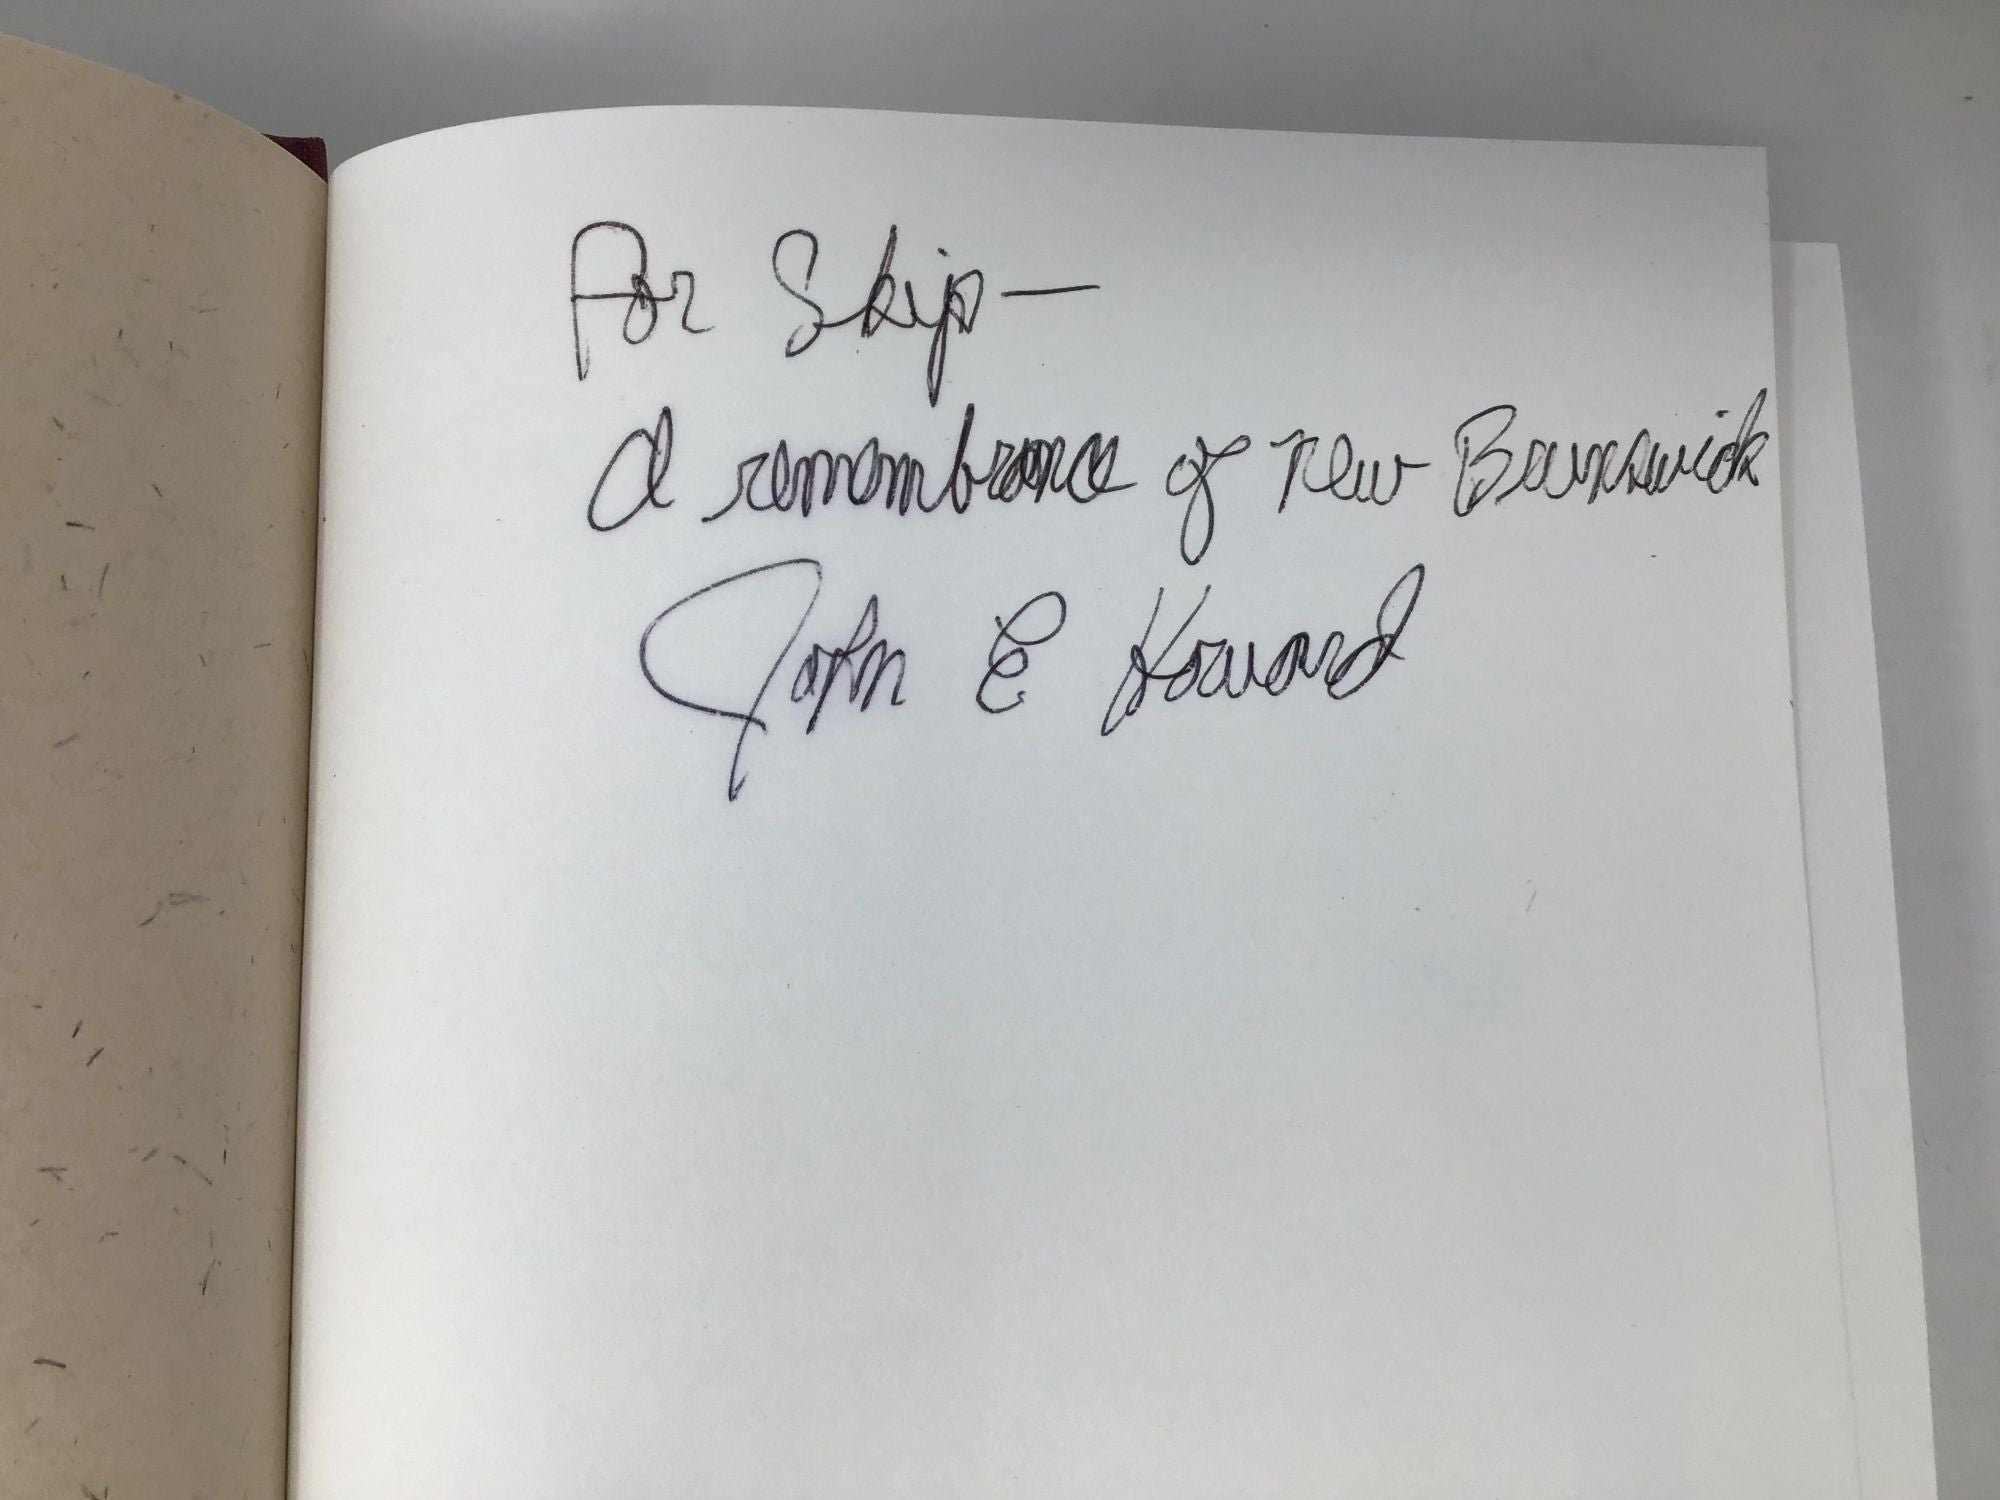 For Skip—
A remembrance of New Brunswick
John E Howard